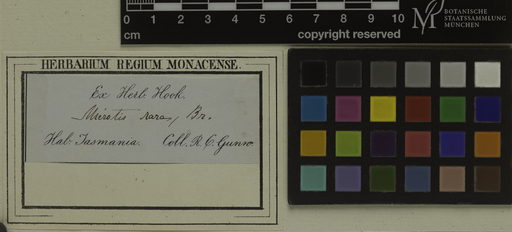 0 1 2 3 4 5 6 7 8 9 10
cm copyright reserved
BOTANISCHE
STAATSSAMMLUNG
MÜNCHEN
HERBARIUM REGIUM MONACENSE.
Ex Herb. Hook.
Microtis rara, Br.
Hab. Tasmania. Coll. R. C. Gunn.